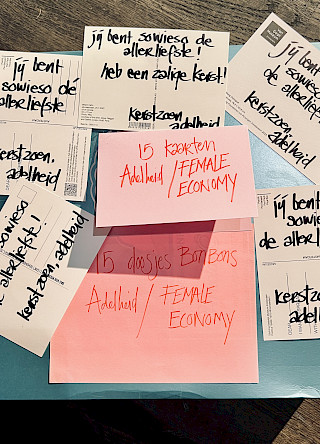 jij bent
sowieso dé
allerliefste
kerstzoen,
adelheid
jij bent sowieso de
allerliefste!
heb een zalige kerst!
kerstzoen,
adelheid
jij bent
sowieso
de allerliefste
kerstzoen,
adelheid
15 kaarten
Adelheid / FEMALE
ECONOMY
15 doosjes BonBons
Adelheid / FEMALE
ECONOMY
sowieso
de allerliefste!
kerstzoen, adelheid
jij bent
sowieso
de
kerstzoen